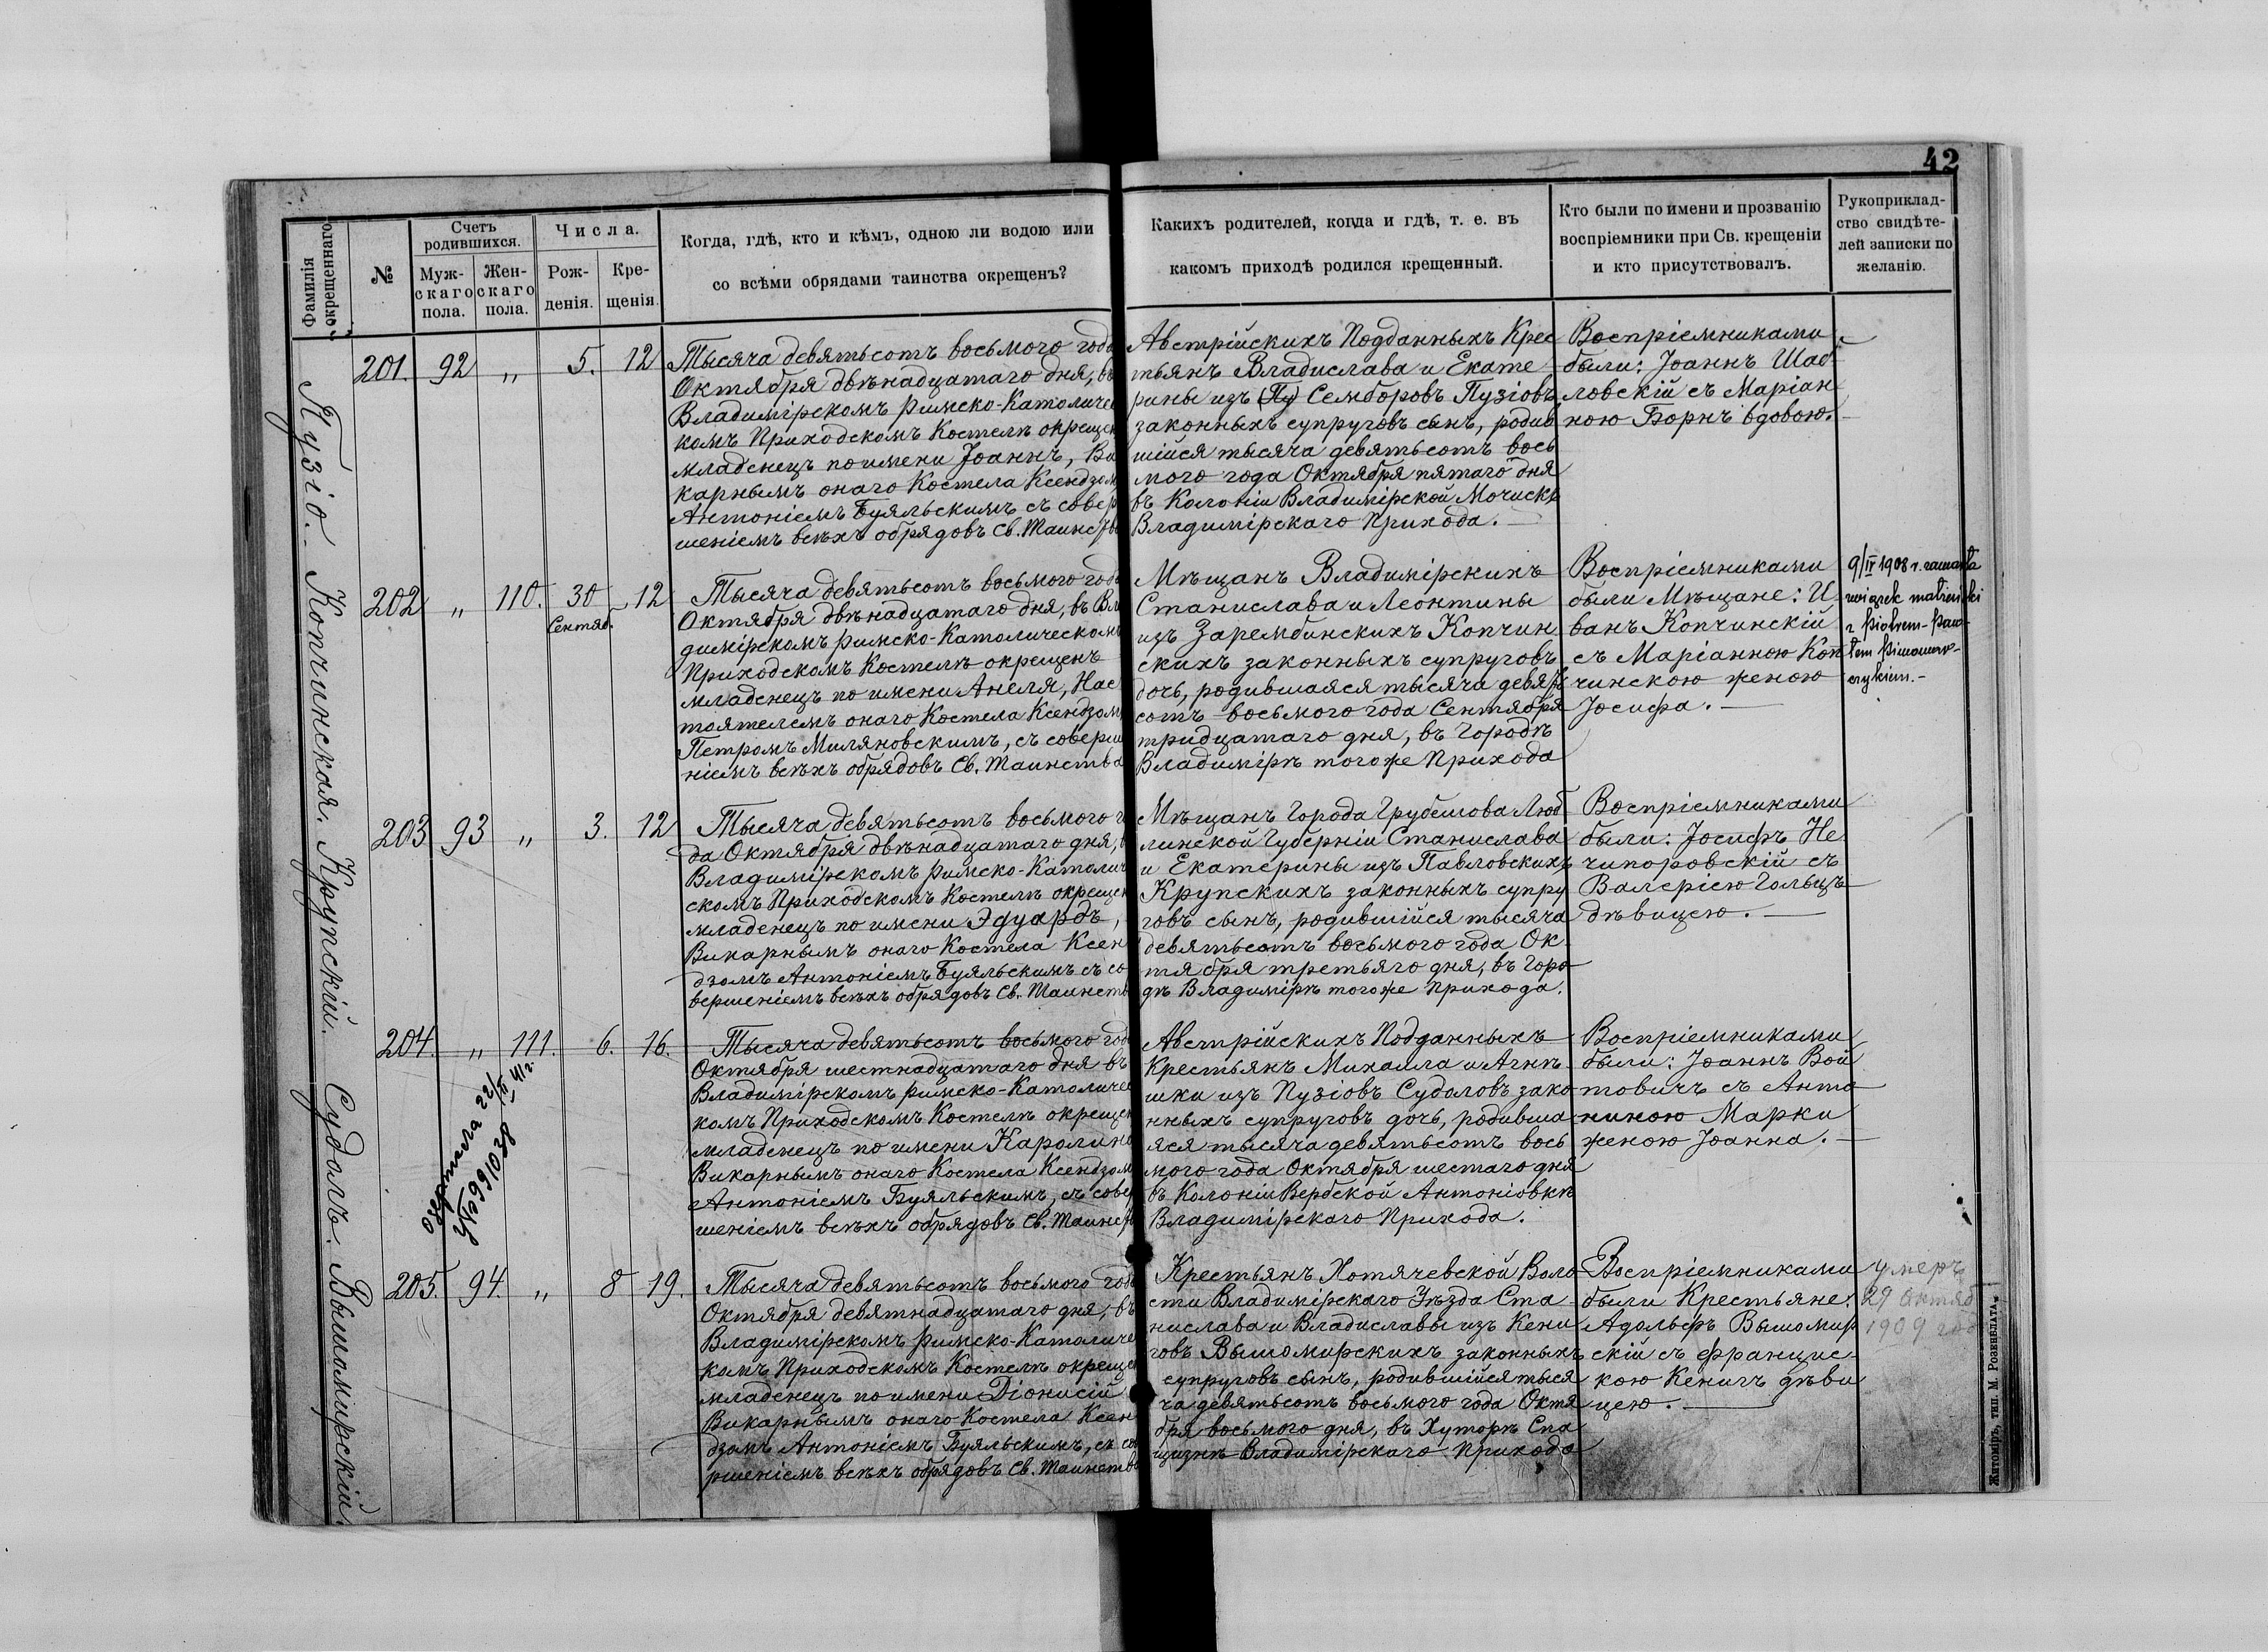 42
Фамилія окрещеннаго.
№
Счетъ родившихся.
Муж-скаго пола.
Жен-скаго пола.
Числа.
Рож-денія.
Кре-щенія.
Когда, гдѣ, кто и кѣмъ, одною ли водою или
со всѣми обрядами таинства окрещенъ?
Каких​ъ родителей, когда и гдѣ, т. е. въ
какомъ приходѣ родился крещенный.
Кто были по имени и прозванію
воспріемники при Св. крещеніи
и кто присутствовалъ.
Рукоприклад-
ство свидѣте-
лей записки по
желанію.
Пузіо.
201. 92 „ 5. 12
Тысяча девятьсотъ восьмого года
Октября двѣнадцатаго дня, въ
Владимірскомъ Римско-Католичес
комъ Приходскомъ Костелѣ окрещен
младенецъ по имени Іоаннъ, Ви
карнымъ онаго Костела Ксендзом
Антоніемъ Буяльскимъ съ совер
шеніемъ всѣхъ обрядовъ Св. Таинств
Австрійскихъ Подданныхъ Крес
тьянъ Владислава и Екате
рины изъ (Пу) Семборовъ Пузіовъ
законныхъ супруговъ сынъ, родив
шійся тысяча девятьсотъ вось
мого года Октября пятаго дня
въ Колоніи Владимірской Мочискѣ
Владимірскаго Прихода.
Воспріемниками
были: Іоаннъ Шаб
ловскій съ Маріан
ною Борнъ вдовою.
Копчинская.
202 „ 110. 30 12
Сентяб.
Тысяча девятьсотъ восьмого года
Октября двѣнадцатаго дня, въ Вла
димірскомъ Римско-Католическомъ
Приходскомъ Костелѣ окрещенъ
младенецъ по имени Анеля, Нас
тоятелемъ онаго Костела Ксендзомъ
Петромъ Миляновскимъ, съ соверше
ніемъ всѣхъ обрядовъ Св. Таинства
Мѣщанъ Владимірскихъ
Станислава и Леонтины
изъ Зарембинскихъ Копчин
скихъ законныхъ супруговъ
дочь, родившаяся тысяча девять
сотъ восьмого года Сентября
тридцатаго дня, въ Городѣ
Владимірѣ того же Прихода
Воспріемниками
были Мѣщане: И
ванъ Копчинскій
съ Маріанною Коп
чинскою женою
Іосифа.
związek małżeński
z Piotrem-Paw-
łem
Крупскій.
203 93 „ 3. 12
Тысяча девятьсотъ восьмого го
да Октября двѣнадцатаго дня, въ
Владимірскомъ Римско-Католиче
скомъ Приходскомъ Костелѣ окрещен
младенецъ по имени Эдуардъ,
Викарнымъ онаго Костела Ксен
дзомъ Антоніемъ Буяльскимъ съ со
вершеніемъ всѣхъ обрядовъ Св. Таинств
Мѣщанъ Города Грубешова Люб
линской Губерніи Станислава
и Екатерины изъ Павловскихъ
Крупскихъ законныхъ супру
говъ сынъ, родившійся тысяча
девятьсотъ восьмого года Ок
тября третьяго дня, въ Горо
дѣ Владимірѣ того же Прихода.
Воспріемниками
были: Іосифъ Не
чипоровскій съ
Валеріею Гольцъ
дѣвицею.
Судолъ.
204. „ 111. 6. 16.
Тысяча девятьсотъ восьмого года
Октября шестнадцатаго дня въ
Владимірскомъ Римско-Католичес
комъ Приходскомъ Костелѣ окрещен
младенецъ по имени Каролина
Викарнымъ онаго Костела Ксендзом
Антоніемъ Буяльскимъ, съ совер
шеніемъ всѣхъ обрядовъ Св. Таинств
Австрійскихъ Подданныхъ
Крестьянъ Михаила и Агнѣ
шки изъ Пузіовъ Судоловъ зако
нныхъ супруговъ дочь, родивша
яся тысяча девятьсотъ вось
мого года Октября шестаго дня
въ Колоніи Вербской Антоніовкѣ
Владимірскаго Прихода.
Воспріемниками
были: Іоаннъ Вой
товичъ съ Анто
ниною Марки
женою Іоанна.
Вышомирскій.
205. 94. „ 8 19.
Тысяча девятьсотъ восьмого года
Октября девятнадцатаго дня, въ
Владимірскомъ Римско-Католичес
комъ Приходскомъ Костелѣ окрещен
младенецъ по имени Діонисій
Викарнымъ онаго Костела Ксен
дзомъ Антоніемъ Буяльскимъ, съ сове
ршеніемъ всѣхъ обрядовъ Св. Таинства
Крестьянъ Хотячевской Воло
сти Владимірскаго Уѣзда Ста
нислава и Владиславы изъ Кени
говъ Вышомирскихъ законныхъ
супруговъ сынъ, родившійся тыся
ча девятьсотъ восьмого года Октя
бря восьмого дня, въ Хуторѣ Спа
щизнѣ Владимірскаго Прихода
Воспріемниками
были Крестьяне:
Адольфъ Вышомир
скій съ Францис
кою Кенигъ дѣви
цею.
умеръ
29 Октяб
1909 год
Житоміръ, тип. М. Розенблата.